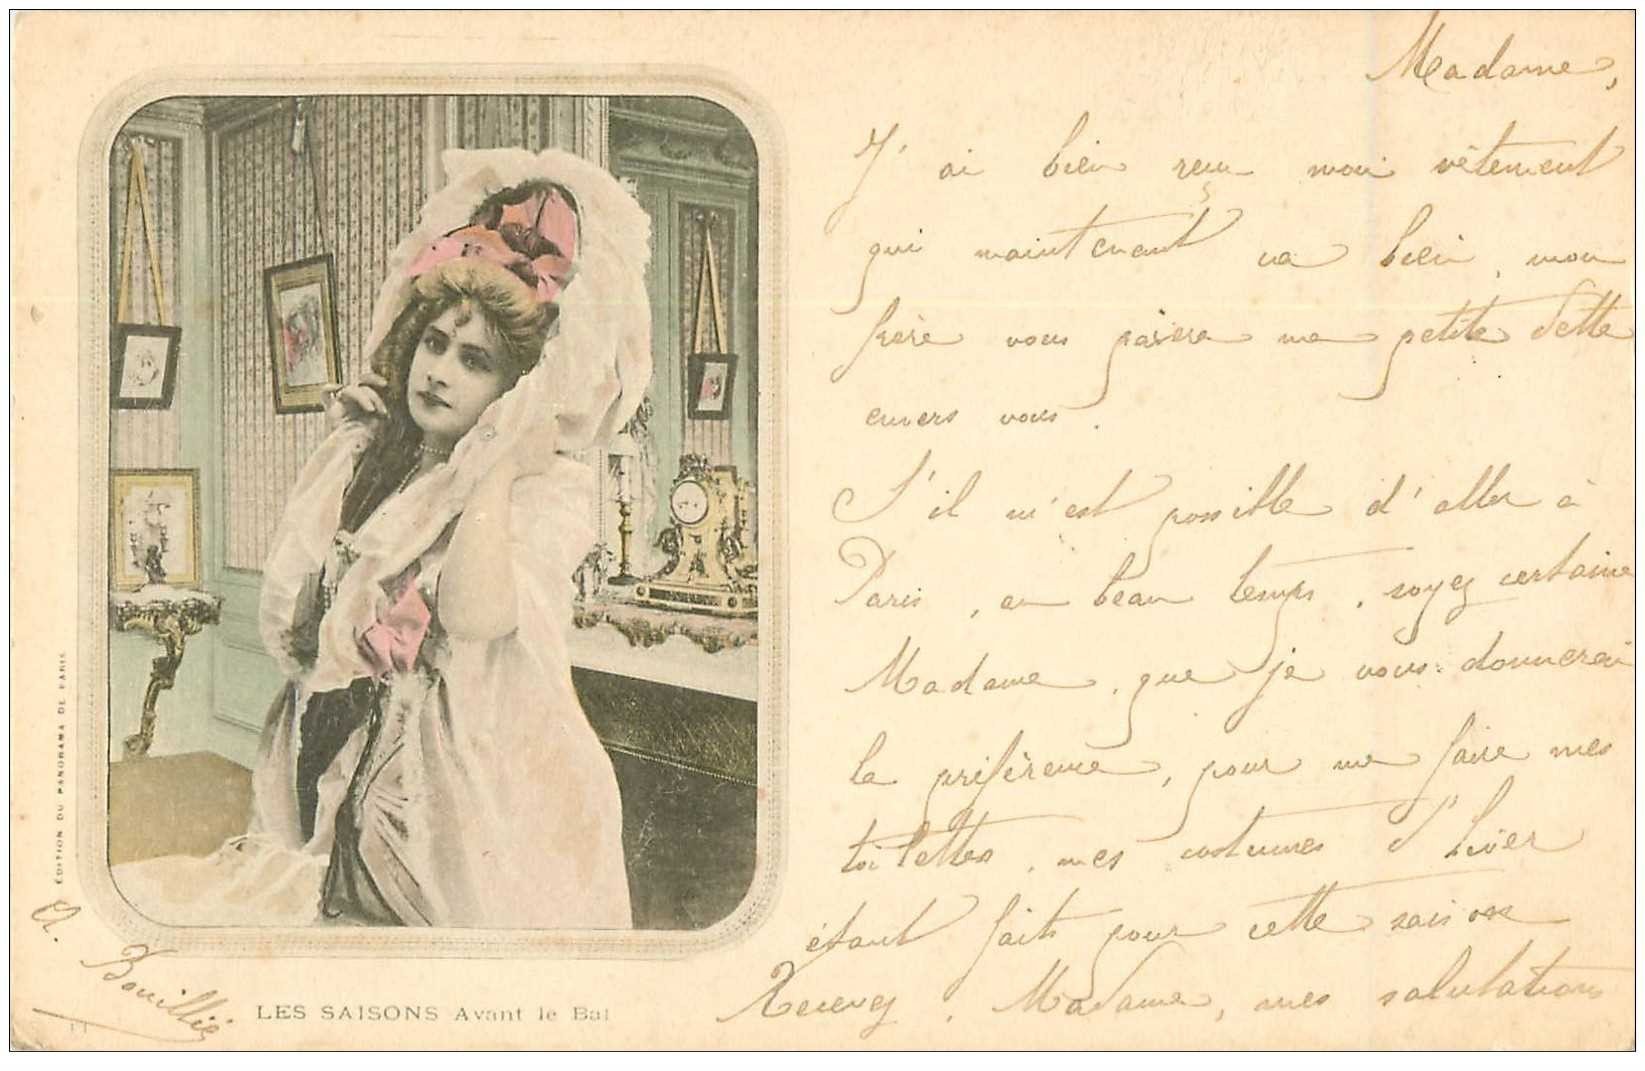 Madame,
J'ai bien reçu mon vêtement
qui maintenant va bien, mon
frère vous paiera ma petite dette
envers vous.
S'il m'est possible d'aller à
Paris, au beau temps, soyez certaine
Madame, que je vous donnerai
la préférence, pour me faire mes
toilettes, mes costumes d'hiver
étant faits pour cette saison
Recevez, Madame, mes salutations
A. Bouillié
LES SAISONS Avant le Bal
ÉDITION DU PANORAMA DE PARIS